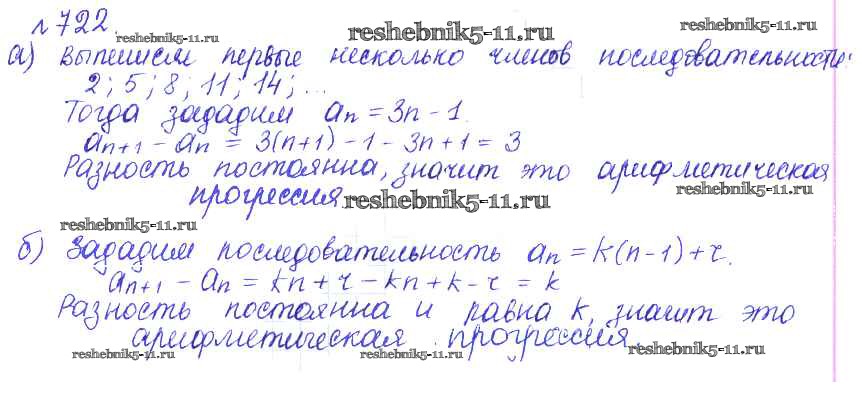 № 722.
reshebnik5-11.ru
reshebnik5-11.ru
а) Выпишем первые несколько членов последовательности:
2; 5; 8; 11; 14; ...
Тогда зададим aₙ = 3n - 1.
aₙ₊₁ - aₙ = 3(n+1) - 1 - 3n + 1 = 3
Разность постоянна, значит это арифметическая
reshebnik5-11.ru
прогрессия.
reshebnik5-11.ru
reshebnik5-11.ru
б) Зададим последовательность aₙ = k(n-1) + r.
aₙ₊₁ - aₙ = kn + r - kn + k - r = k
Разность постоянна и равна k, значит это
арифметическая прогрессия
reshebnik5-11.ru
reshebnik5-11.ru
reshebnik5-11.ru